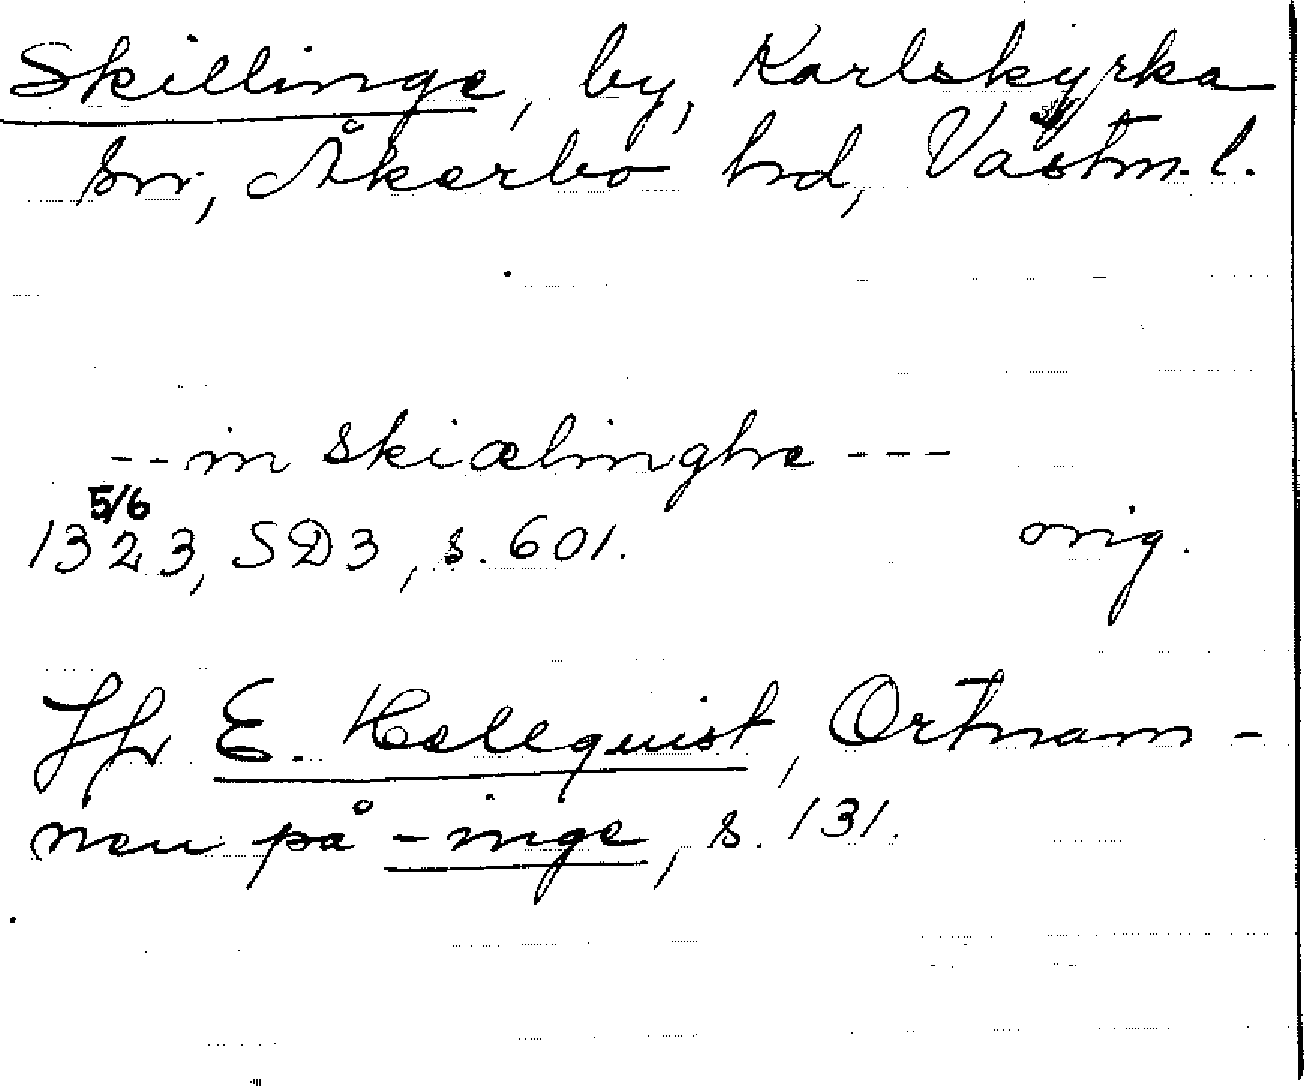 Skillinge, by, Karlskyrka
sn, Åkerbo hd, Västm. l.
-- in skiælinghe ---
5/6
1323, SD3, s. 601. orig.
Jfr E. Hellquist, Ortnam-
nen på -inge, s. 131.